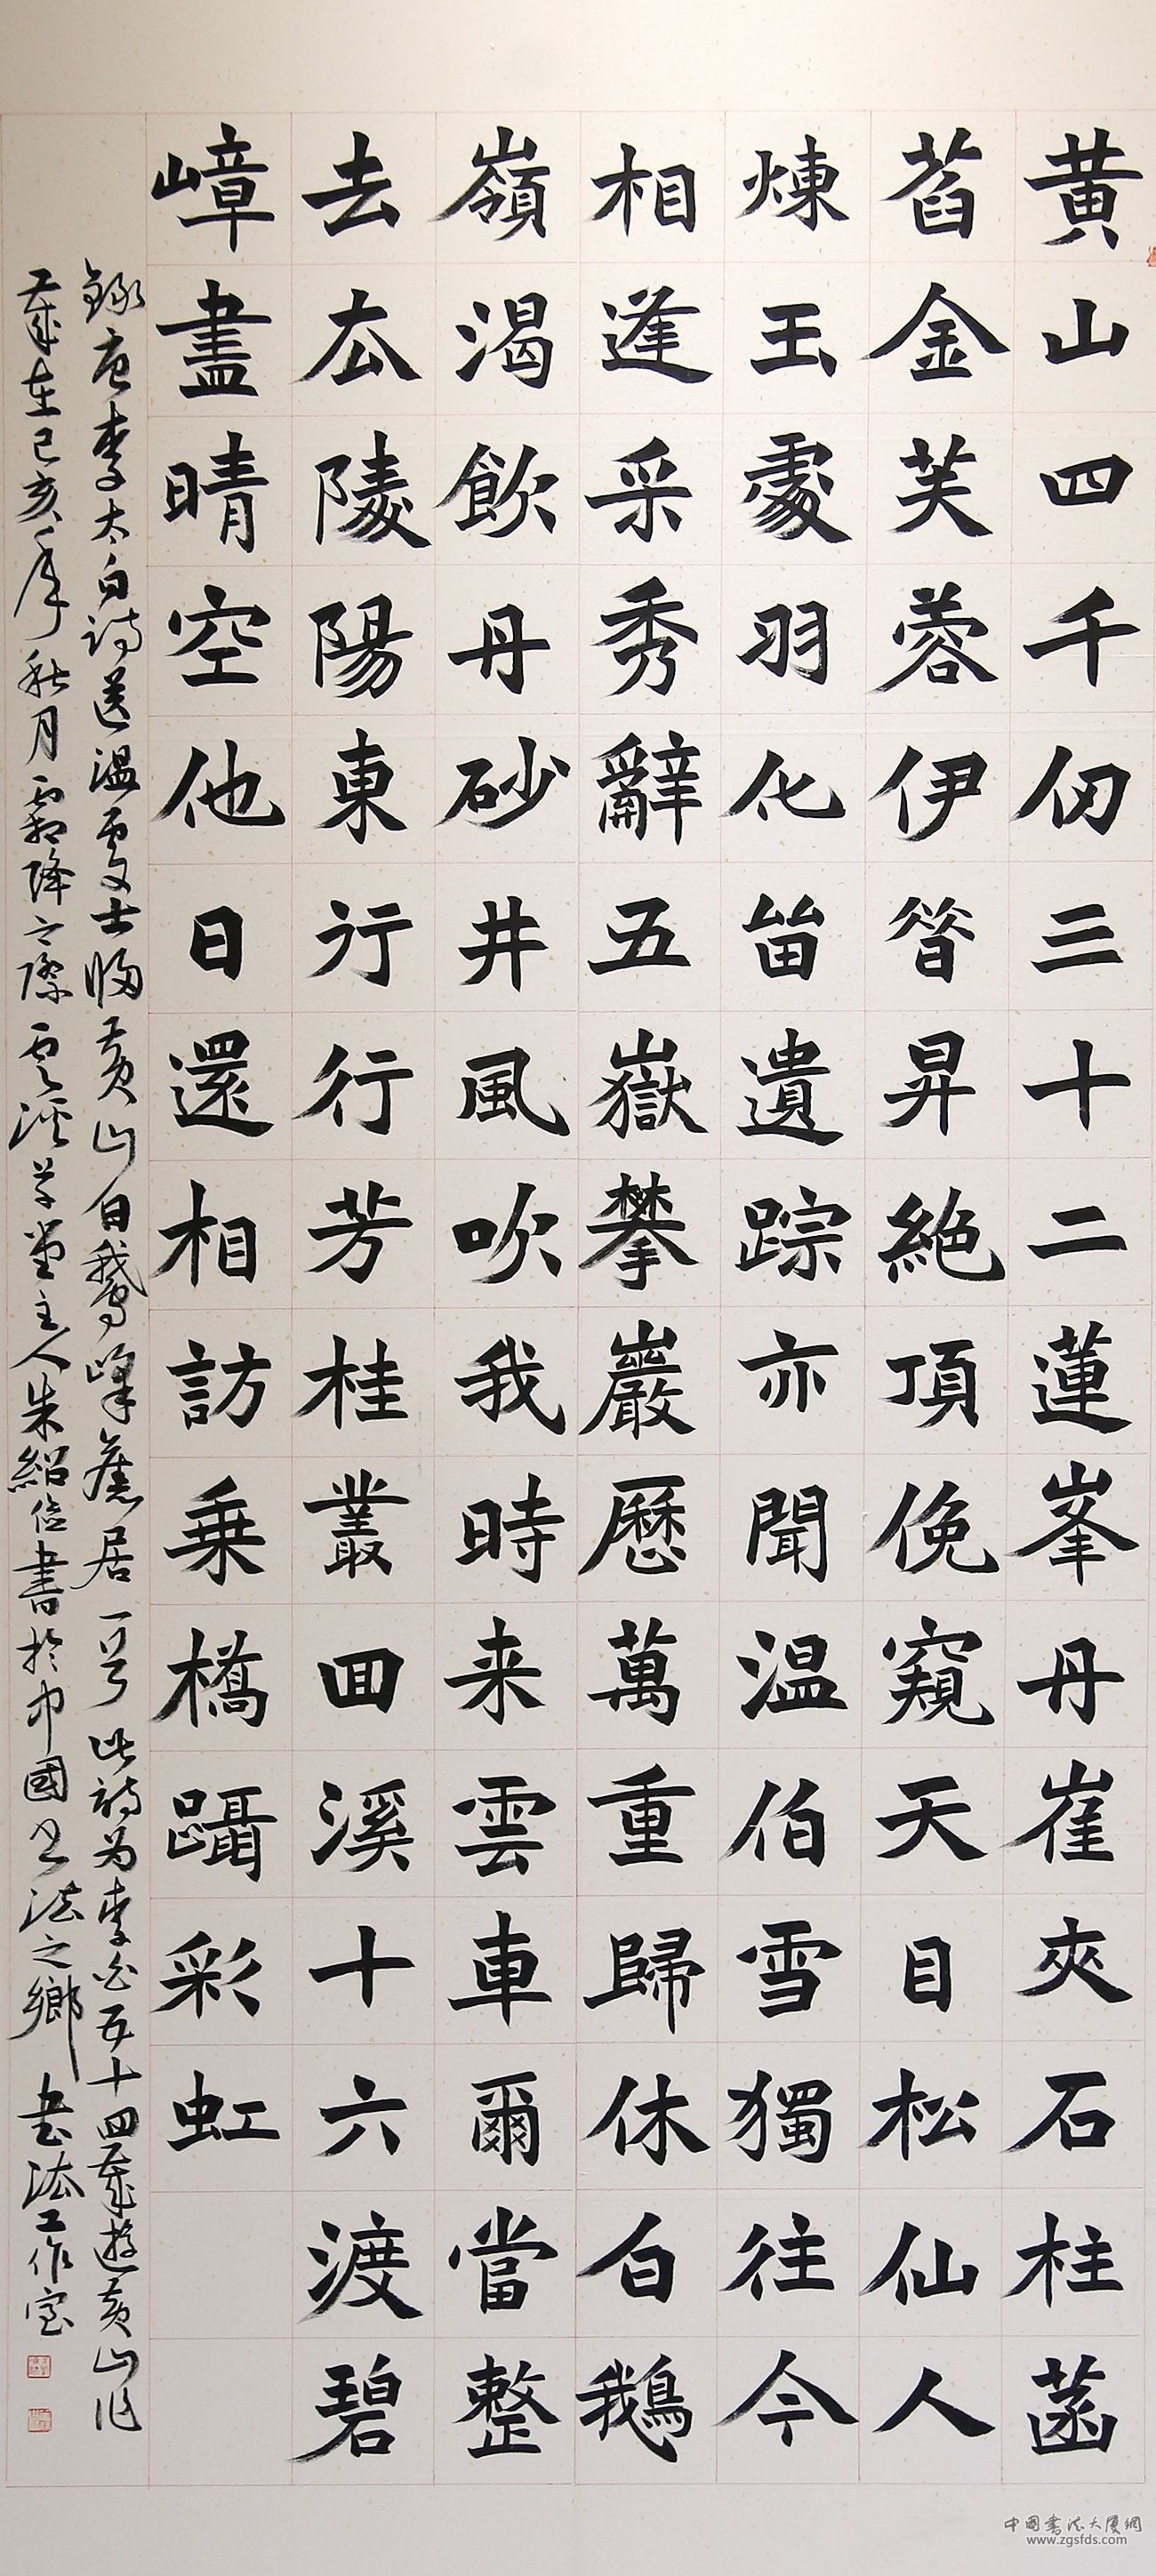 黄山四千仞三十二蓮峯丹崖夾石柱菡
萏金芙蓉伊昔昇絶頂俛窺天目松仙人
煉玉處羽化留遺踪亦聞温伯雪獨往今
相逢采秀辭五嶽攀巖歷萬重歸休白鵝
嶺渴飲丹砂井風吹我時来雲車爾當整
去去陵陽東行行芳桂叢回溪十六渡碧
嶂盡晴空他日還相訪乗橋躡彩虹
錄唐李太白詩送温處士歸黄山白鵝峰舊居一首 此詩为李白五十四歲遊黄山作
歲在己亥年秋月霜降之際雲溪草堂主人朱紹俭書於中國书法之鄉 書法工作室
中国書法大厦網
www.zgsfds.com